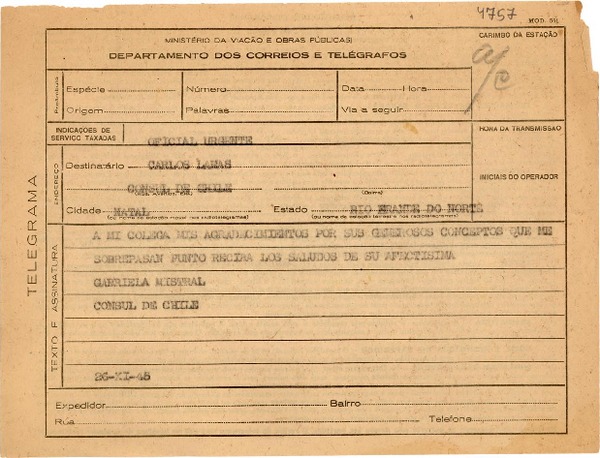 4757
MOD. 5
MINISTÉRIO DA VIAÇÃO E OBRAS PÚBLICAS
DEPARTAMENTO DOS CORREIOS E TELÉGRAFOS
CARIMBO DA ESTAÇÃO
a/c
Espécie Número Data Hora
Origem Palavras Via a seguir
INDICAÇÕES DE SERVIÇO TAXADAS
OFICIAL URGENTE
HORA DA TRANSMISSÃO
INICIAIS DO OPERADOR
ENDEREÇO
Destinatário CARLOS LAMAS
CONSUL DE CHILE
Cidade NATAL Estado RIO GRANDE DO NORTE
(ou nome da estação móvel nos radiotelegramas) (ou nome da estação terrestre nos radiotelegramas)
TELEGRAMA
TEXTO E ASSINATURA
A MI COLEGA MIS AGRADECIMIENTOS POR SUS GENEROSOS CONCEPTOS QUE ME
SOBREPASAN PUNTO RECIBA LOS SALUDOS DE SU AFECTISIMA
GABRIELA MISTRAL
CONSUL DE CHILE
26-XI-45
Expedidor Bairro
Rúa Telefone